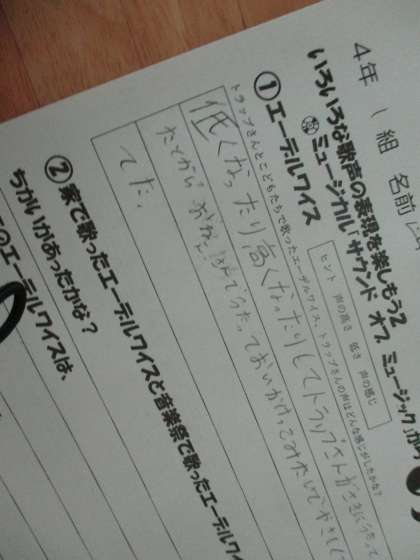 4年 1 組 名前
いろいろな歌声の表現を楽しもう2
ミュージカル「サウンド オブ ミュージック」から
ヒント 声の高さ 低さ 声の感じ
① エーデルワイス
トラップさんとこどもたちで歌ったエーデルワイス、トラップさんの声はどんな感じがしたかな?
低くなったり高くなったりしてトラップさんが
うたっておいかけっこみたい
てた。
② 家で歌ったエーデルワイスと音楽祭で歌ったエーデルワイ
ちがいがあったかな?
のエーデルワイスは、